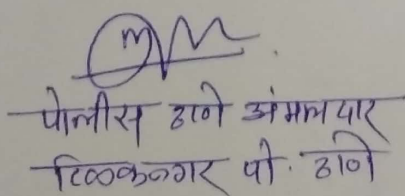 पोलीस ठाणे अंमलदार
टिळकनगर पो. ठाणे